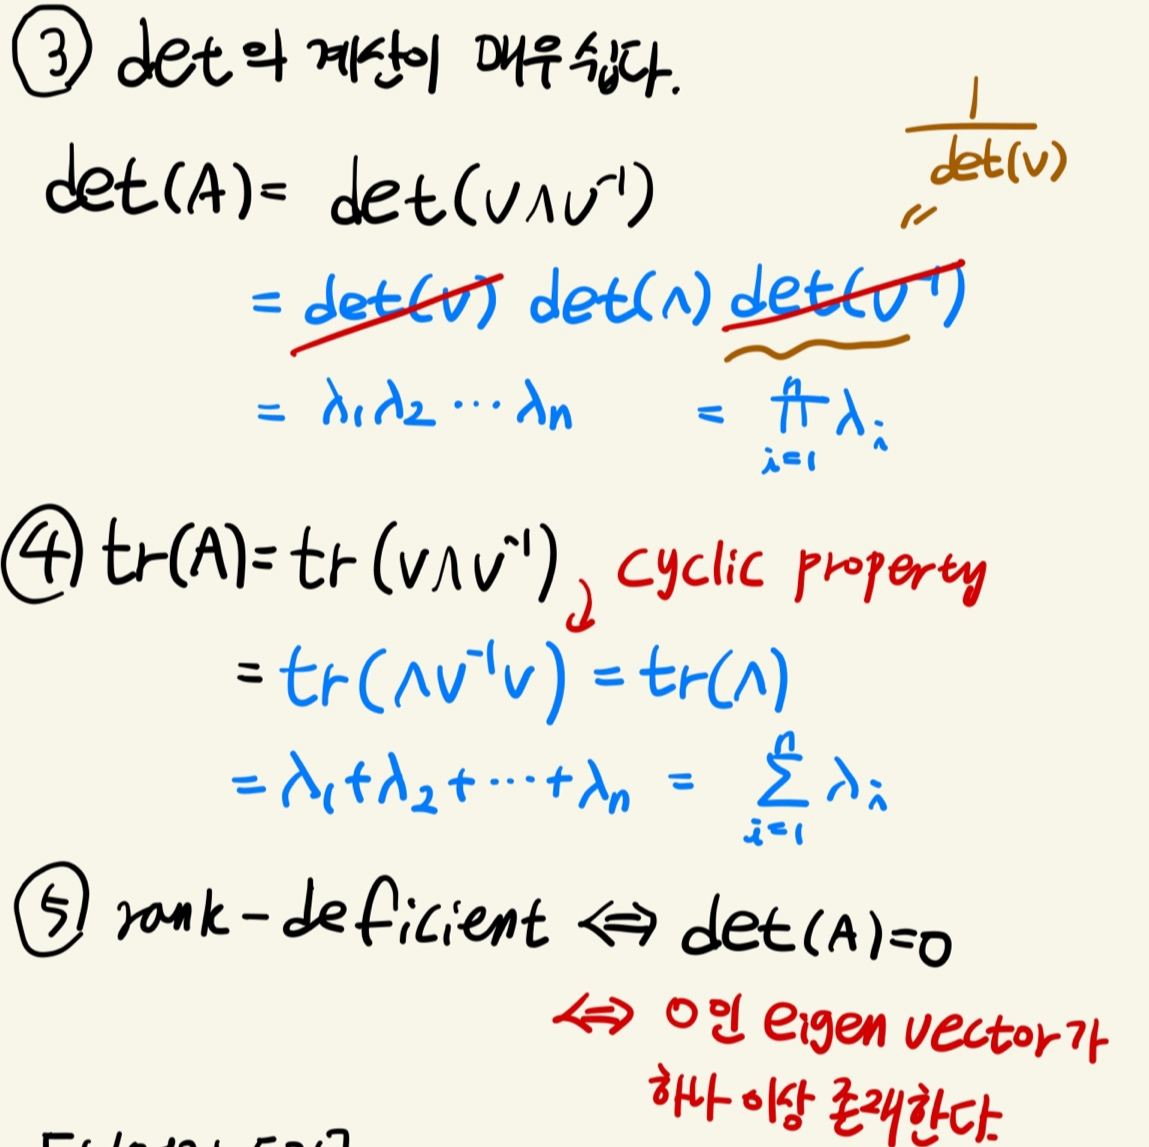 ③ det의 계산이 매우 쉽다.
1
det(V)
〃
det(A) = det(VΛV⁻¹)
= det(V) det(Λ) det(V⁻¹)
= λ₁λ₂ ⋯ λn = ∏ⁿᵢ₌₁ λᵢ
④ tr(A) = tr(VΛV⁻¹) cyclic property
= tr(ΛV⁻¹V) = tr(Λ)
= λ₁+λ₂+⋯+λn = ∑ⁿᵢ₌₁ λᵢ
⑤ rank-deficient ⇔ det(A)=0
⇔ 0인 eigen vector가
하나 이상 존재한다.